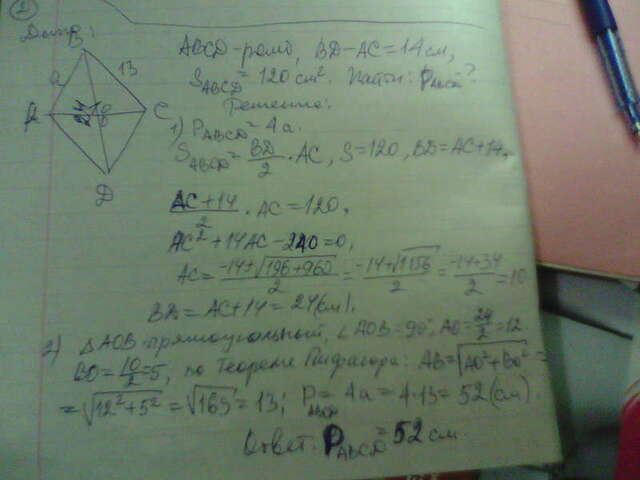 2
Дано:
B
a
13
A
O
C
D
ABCD-ромб, BD-AC=14см,
S_ABCD=120см². Найти: P_ABCD-?
Решение:
1) P_ABCD=4a.
S_ABCD=BD/2·AC, S=120, BD=AC+14,
(AC+14)/2·AC=120,
AC²+14AC-240=0,
AC=(-14+√(196+960))/2=(-14+√1156)/2=(-14+34)/2=10
BD=AC+14=24(см).
2) △AOB-прямоугольный, ∠AOB=90°, AO=24/2=12.
BO=10/2=5, по Теореме Пифагора: AB=√(AO²+BO²)=
=√(12²+5²)=√169=13; P_ABCD=4a=4·13=52(см).
Ответ: P_ABCD=52см.